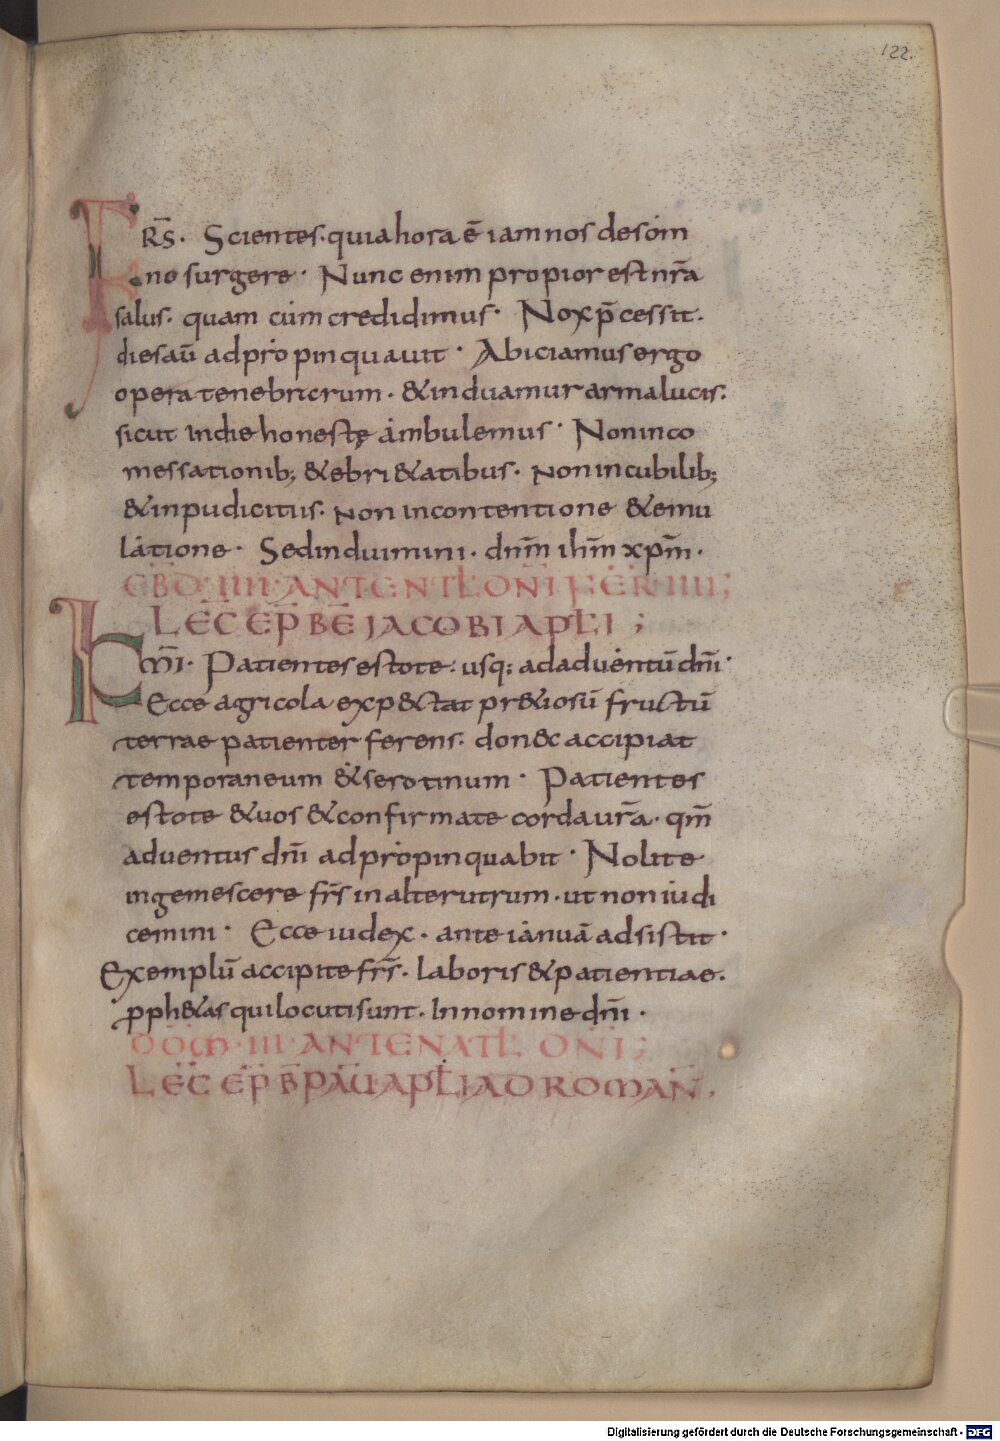 122.
FRS̄. Scientes. quia hora ē iam nos desom
no surgere. Nunc enim propior est nr̄a
salus. quam cum credidimus. Nox p̄cessit.
dies aū adpropinquauit. Abiciamus ergo
opera tenebrarum. & induamur arma lucis.
sicut indie honestę ambulemus. Non inco
messationib; & ebri&atibus. Non incubilib;
& inpudicitus. Non incontentione & emu
latione. Sed induimini. dnm̄ ihm̄ xpm̄.
EBD̄. IIII. ANTE NTL̄ DN̄I FER̄ IIII;
LEC̄ EP̄ BĒ IACOBI APL̄I;
KM̄I. Patientes estote. usq; ad aduentū dn̄i.
Ecce agricola expectat pr&iosū fructū
terrae patienter ferens. donec accipiat
temporaneum & serotinum. Patientes
estote & uos & confirmate corda ur̄a. qm̄
aduentus dn̄i adpropinquabit. Nolite
ingemescere fr̄s in alterutrum. ut non iudi
cemini. Ecce iudex. ante ianuā adsistit.
Exemplū accipite fr̄s. laboris & patientiae.
pph&as qui locuti sunt. In nomine dn̄i.
DOM̄. III ANTE NATL̄ DN̄I;
LEC̄ EP̄ B̄ PAU̅ APL̄I AD ROMAN̄.
Digitalisierung gefördert durch die Deutsche Forschungsgemeinschaft - DFG